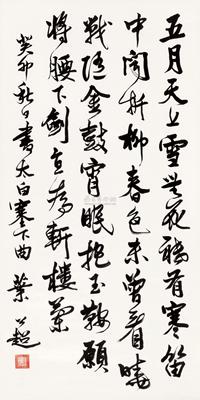 五月天山雪無花祇有寒笛
中聞折柳春色未曾看曉
戰隨金鼓宵眠抱玉鞍願
將腰下劍直為斬樓蘭
癸卯秋日書太白塞下曲 葉公超